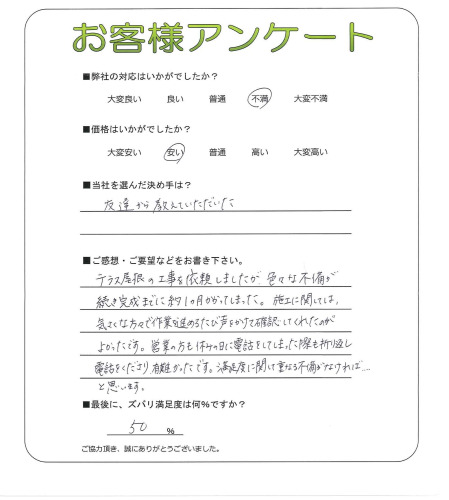 お客様アンケート
■弊社の対応はいかがでしたか？
大変良い 良い 普通 不満 大変不満
■価格はいかがでしたか？
大変安い 安い 普通 高い 大変高い
■当社を選んだ決め手は？
友達から教えていただいた
■ご感想・ご要望などをお書き下さい。
テラス屋根の工事を依頼しましたが、色々な不備が
続き完成までに約1ヶ月かかってしまった。施工に関しては、
気さくな方々で作業が進めるたび声をかけて確認してくれたのが
よかったです。営業の方も休みの日に電話をしてしまった際も折り返し
電話をくださり有難かったです。満足度に関して重なる不備がなければ…
と思います。
■最後に、ズバリ満足度は何%ですか？
50 %
ご協力頂き、誠にありがとうございました。